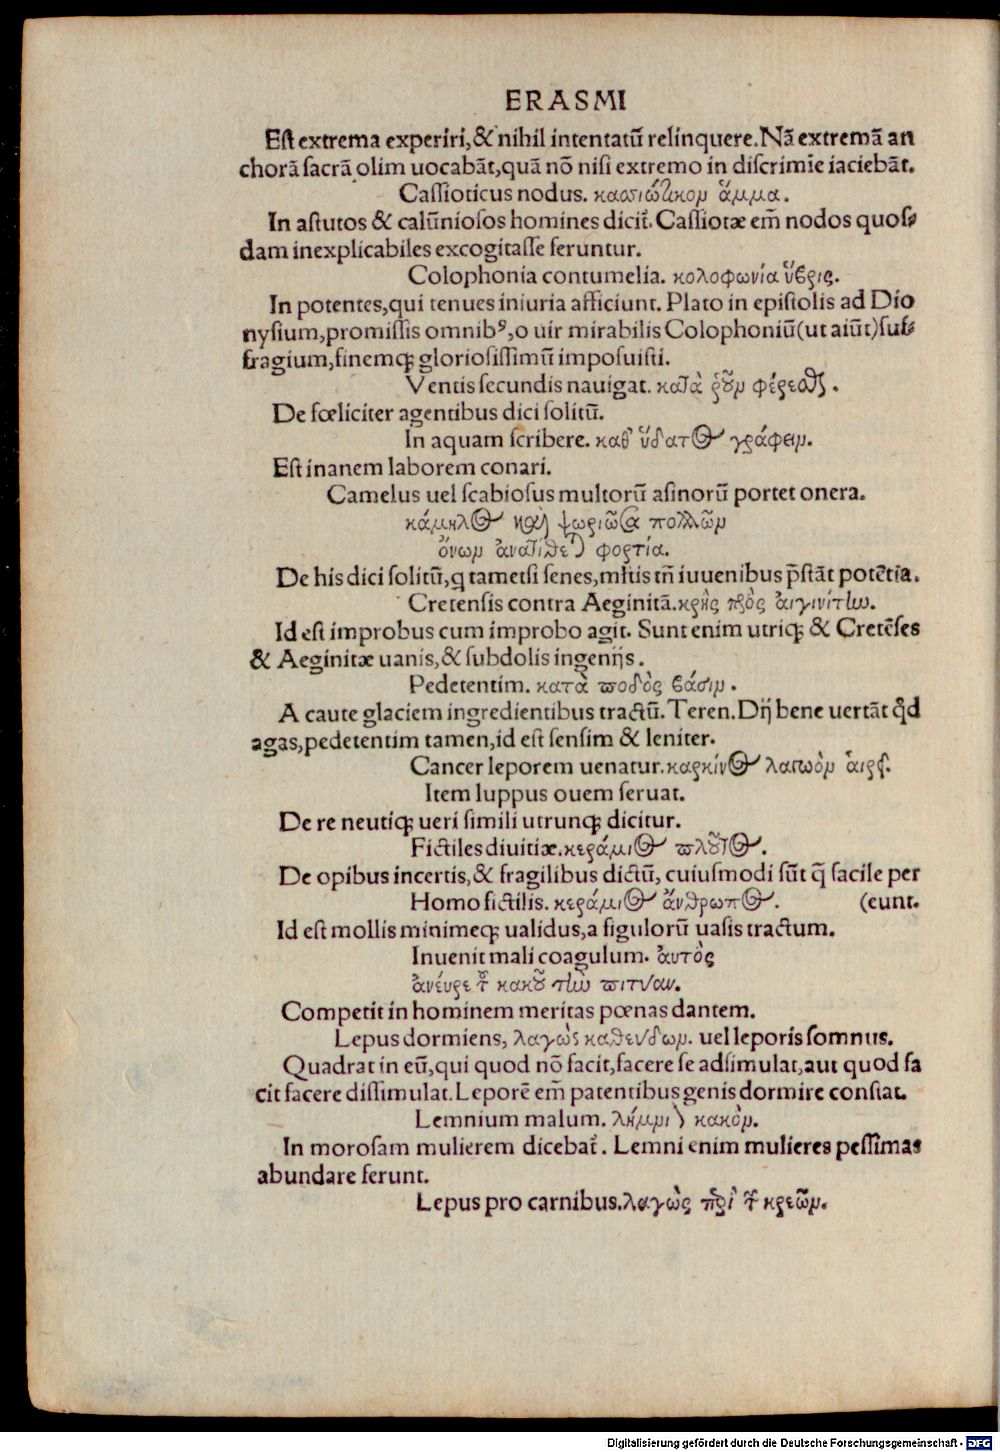 ERASMI
Est extrema experiri,& nihil intentatū relinquere.Nā extremā an
chorā sacrā olim uocabāt,quā nō nisi extremo in discrimīe iaciebāt.
Cassioticus nodus. κασιώτικομ ἅμμα.
In astutos & calūniosos homines dicit̃. Cassiotæ em̃ nodos quos⸗
dam inexplicabiles excogitasse feruntur.
Colophonia contumelia. κολοφωνία ὕβρις.
In potentes,qui tenues iniuria afficiunt. Plato in epistolis ad Dio
nysium,promissis omnibꝰ,o uir mirabilis Colophoniū(ut aiūt)suf⸗
fragium,finemqꝫ gloriosissimū imposuisti.
Ventis secundis nauigat. κατὰ ῥοῦμ φέρεσθαι.
De fœliciter agentibus dici solitū.
In aquam scribere. καθ' ὕδατος γράφειμ.
Est inanem laborem conari.
Camelus uel scabiosus multorū asinorū portet onera.
κάμηλος καὶ ψωριῶσα πολλῶμ
ὄνωμ ἀνατίθεται φορτία.
De his dici solitū,q tametsi senes,ml̃tis tñ iuuenibus p̄stāt potētia.
Cretensis contra Aeginitā.κρὴς πρὸς ἀιγινίτημ.
Id est improbus cum improbo agit. Sunt enim utriqꝫ & Cretēses
& Aeginitæ uanis,& subdolis ingenijs.
Pedetentim. κατὰ ποδὸς βάσιμ.
A caute glaciem ingredientibus tractū. Teren.Dij bene uertāt qd̃
agas,pedetentim tamen,id est sensim & leniter.
Cancer leporem uenatur.καρκίνος λαπωὸμ ἁιρεῖ.
Item luppus ouem seruat.
De re neutiqꝫ ueri simili utrunqꝫ dicitur.
Fictiles diuitiæ.κεράμιος πλοῦτος.
De opibus incertis,& fragilibus dictū, cuiusmodi sūt q̄ facile per
Homo fictilis. κεράμιος ἄνθρωπος. (eunt.
Id est mollis minimeqꝫ ualidus,a figulorū uasis tractum.
Inuenit mali coagulum. ἀυτὸς
ἀνέυρε τοῦ κακοῦ τὴμ πιτύαν.
Competit in hominem meritas pœnas dantem.
Lepus dormiens, λαγὼς καθεύδωμ. uel leporis somnus.
Quadrat in eū,qui quod nō facit,facere se adsimulat,aut quod fa
cit facere dissimulat.Leporē em̃ patentibus genis dormire constat.
Lemnium malum. λήμμιομ κακὸμ.
In morosam mulierem dicebat̃. Lemni enim mulieres pessimas
abundare ferunt.
Lepus pro carnibus.λαγὼς περὶ τῶν κρεῶμ.
Digitalisierung gefördert durch die Deutsche Forschungsgemeinschaft - DFG